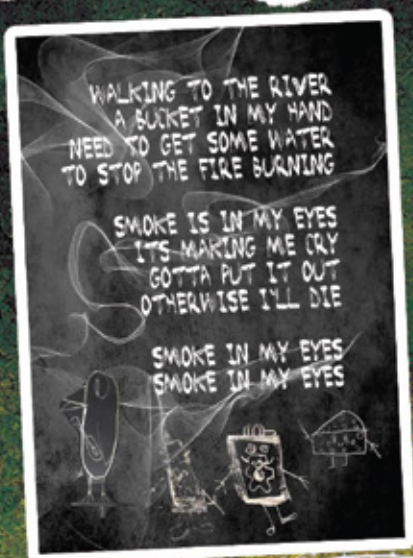 WALKING TO THE RIVER
A BUCKET IN MY HAND
NEED TO GET SOME WATER
TO STOP THE FIRE BURNING
SMOKE IS IN MY EYES
ITS MAKING ME CRY
GOTTA PUT IT OUT
OTHERWISE I'LL DIE
SMOKE IN MY EYES
SMOKE IN MY EYES